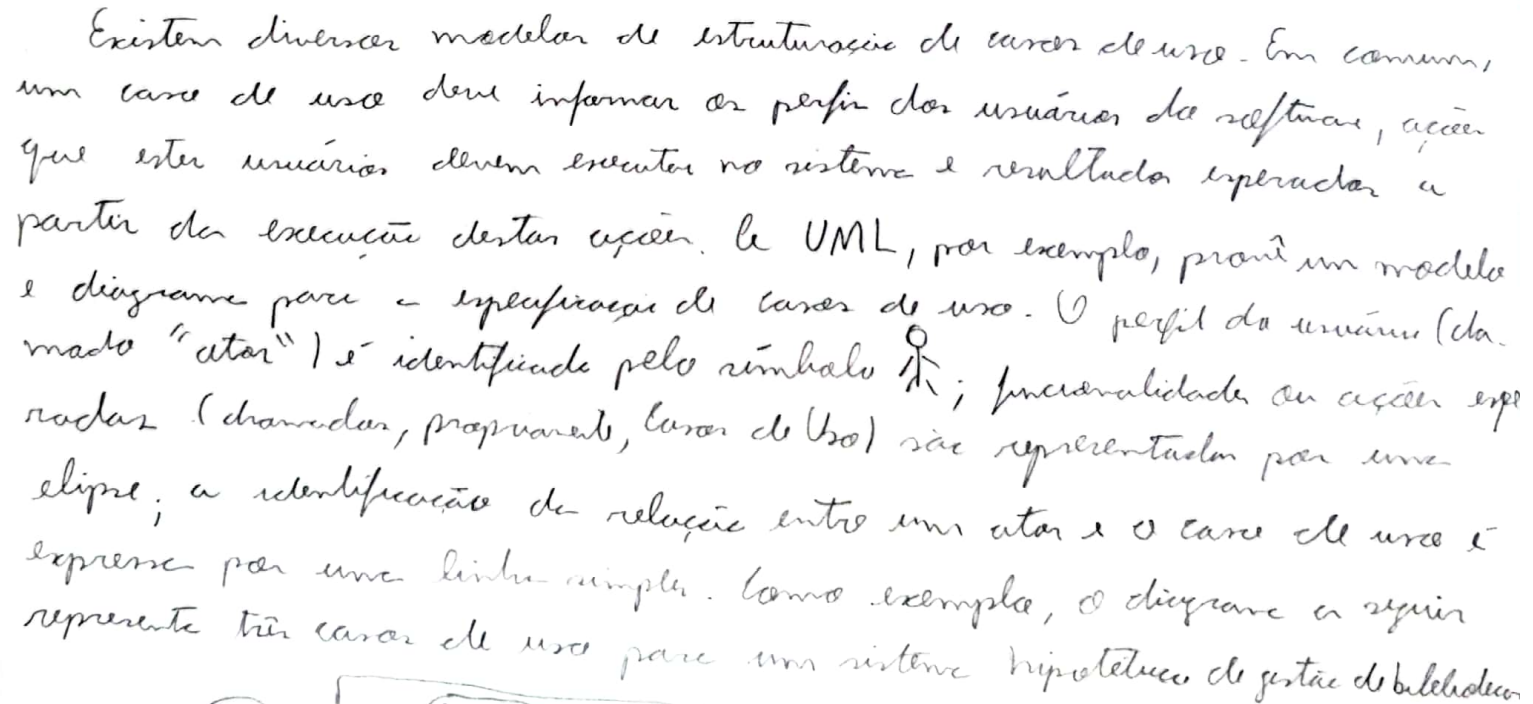 Existem diversos modelos de estruturação de casos de uso. Em comum,
um caso de uso deve informar os perfis dos usuários do software, ações
que estes usuários devem executar no sistema e resultados esperados a
partir da execução destas ações. A UML, por exemplo, provê um modelo
e diagrama para a especificação de casos de uso. O perfil do usuário (cha-
mado "ator") é identificado pelo símbolo ; funcionalidades ou ações espe
radas (chamadas, propriamente, Casos de Uso) são representadas por uma
elipse; a identificação da relação entre um ator e o caso de uso é
expressa por uma linha simples. Como exemplo, o diagrama a seguir
representa três casos de uso para um sistema hipotético de gestão de bibliotecas